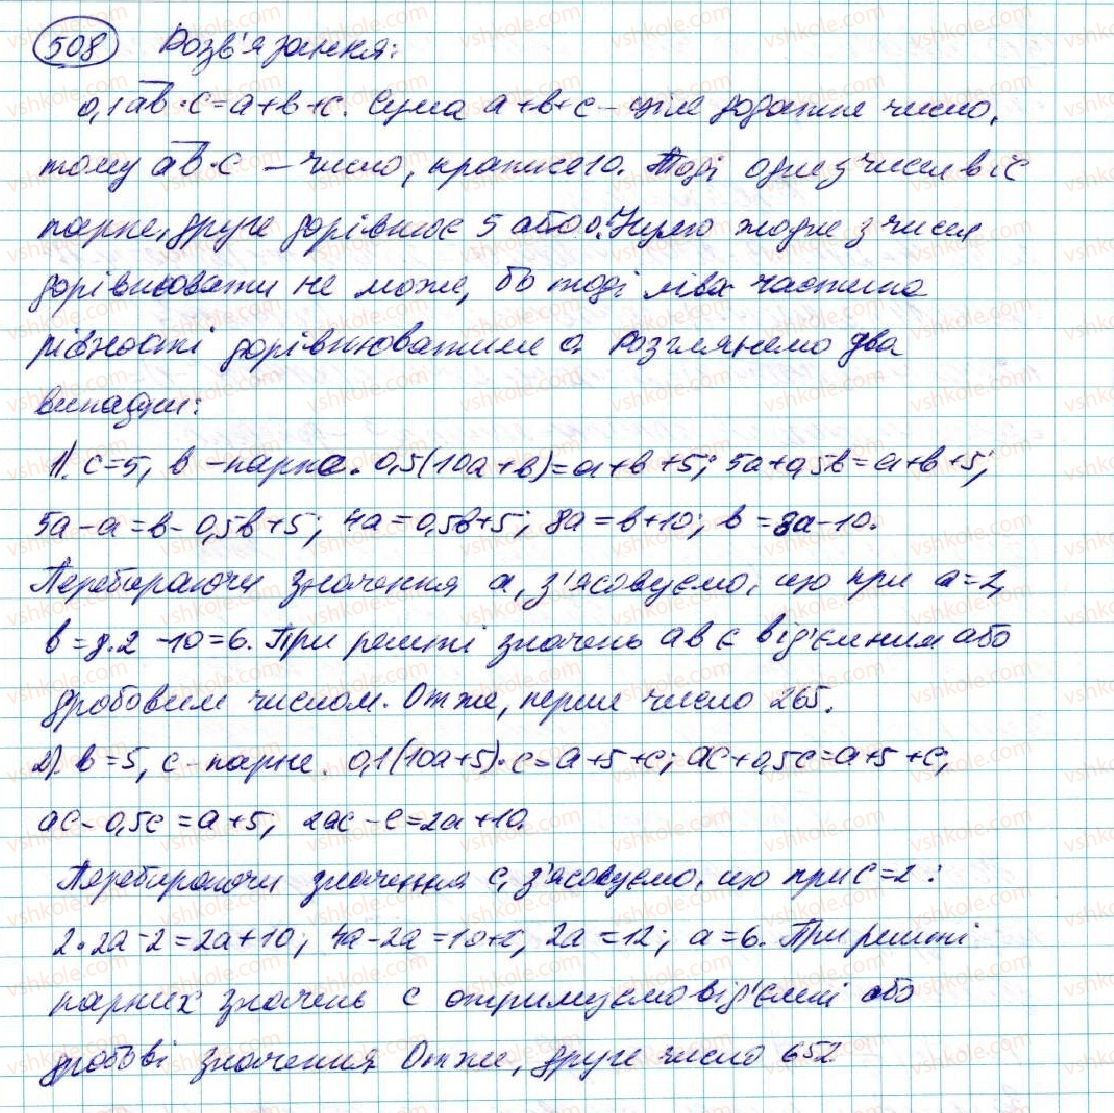 508 Розв'язання:
0,1 ab · c = a + b + c. Сума a + b + c – ціле додатне число,
тому ab · c – число, кратне 10. Тоді одне з чисел b і c
парне, друге дорівнює 5 або 0. Нулю жодне з чисел
дорівнювати не може, бо тоді ліва частина
рівності дорівнюватиме 0. Розглянемо два
випадки:
1). c = 5, b – парне. 0,5(10a + b) = a + b + 5; 5a + 0,5b = a + b + 5;
5a – a = b – 0,5b + 5; 4a = 0,5b + 5; 8a = b + 10; b = 8a – 10.
Перебираючи значення a, з'ясовуємо, що при a = 2,
b = 8·2 – 10 = 6. При решті значень a b є від'ємним або
дробовим числом. Отже, перше число 265.
2). b = 5, c – парне. 0,1(10a + 5) · c = a + 5 + c; ac + 0,5c = a + 5 + c;
ac – 0,5c = a + 5; 2ac – c = 2a + 10.
Перебираючи значення c, з'ясовуємо, що при c = 2:
2 · 2a – 2 = 2a + 10; 4a – 2a = 10 + 2; 2a = 12; a = 6. При решті
парних значень c отримуємо від'ємні або
дробові значення. Отже, друге число 652